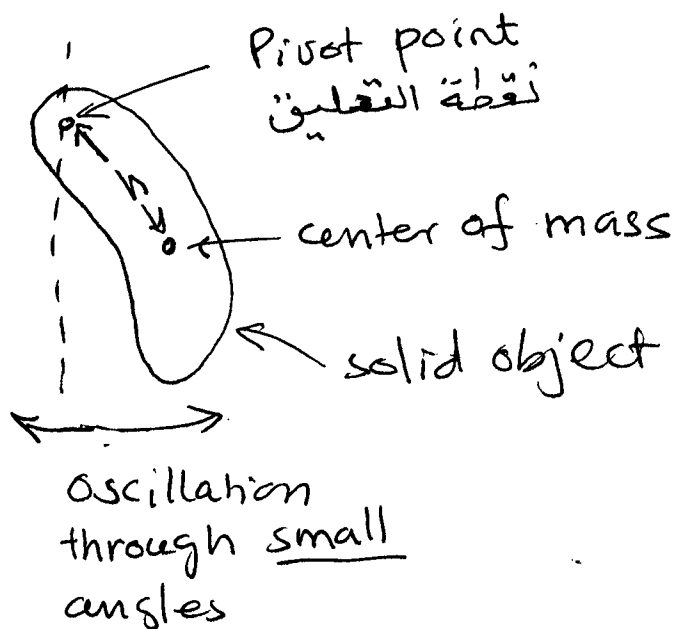 Pivot point
نقطة التعليق
h
center of mass
solid object
oscillation
through small
angles